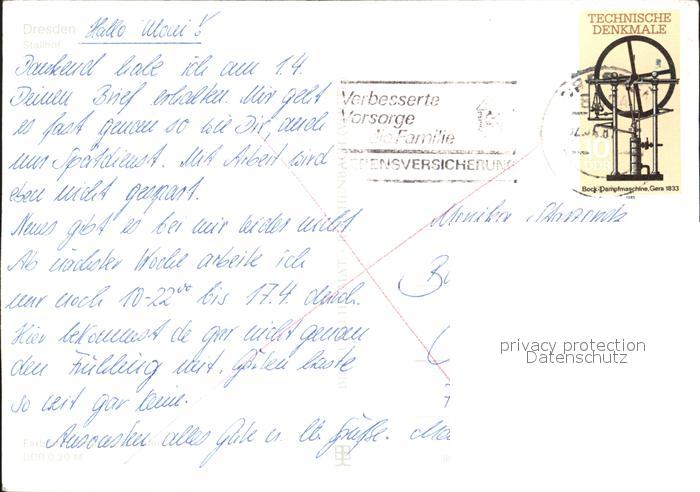 Dresden
Stallhof
Hallo Moni!
Dankend habe ich am 1.4.
Deinen Brief erhalten. Mir geht
es fast genau so wie Dir, auch
nur Spätdienst. Mit Arbeit wird
eben nicht gespart.
Neues gibt es bei mir leider nicht.
Ab nächster Woche arbeite ich
nur noch 10-22⁰⁰ bis 17.4. durch.
Hier bekommst du gar nicht genau
den Frühling mit. Gärten haste
so weit gar keine.
Ansonsten alles Gute u. lb. Grüße.
DDR 0,20 M
Verbesserte
Vorsorge
die Familie
LEBENSVERSICHERUNG
TECHNISCHE
DENKMALE
10
DDR
Bock-Dampfmaschine, Gera 1833
1985
Monika
privacy protection
Datenschutz